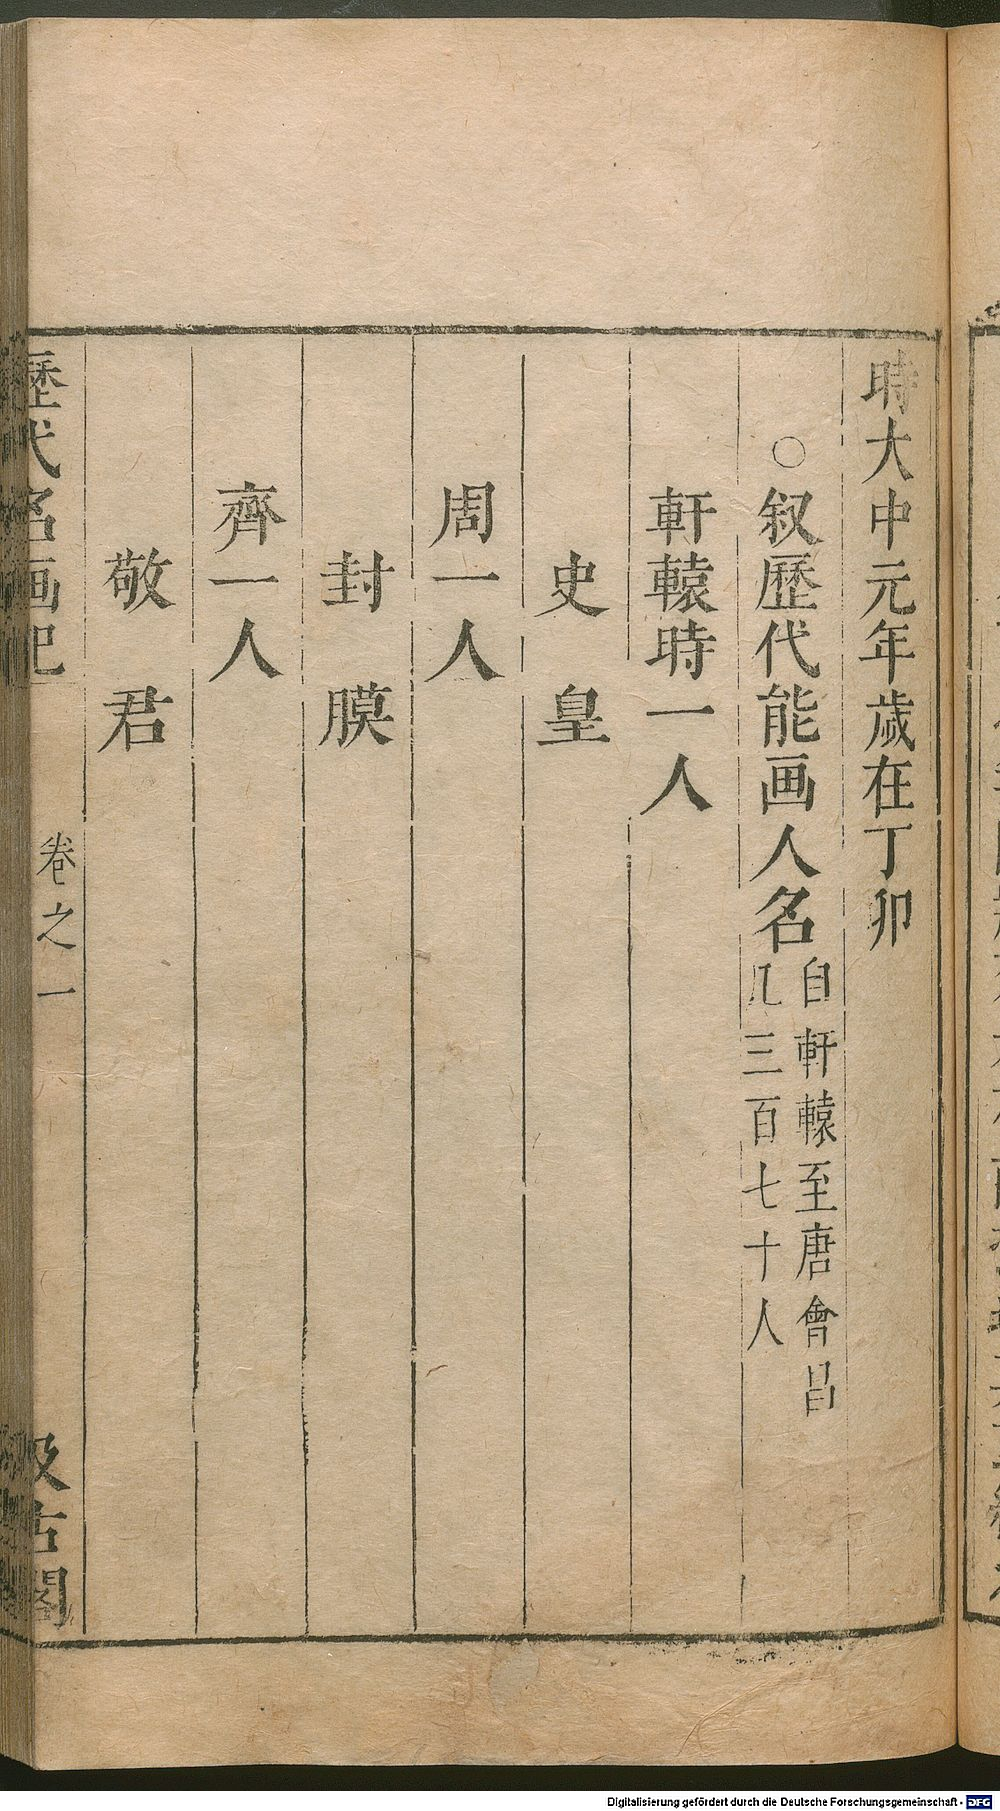 時大中元年歲在丁卯
○叙歷代能画人名
自軒轅至唐會昌
凡三百七十人
軒轅時一人
史皇
周一人
封膜
齊一人
敬君
歷代名画記
卷之一
汲古閣
Digitalisierung gefördert durch die Deutsche Forschungsgemeinschaft - DFG